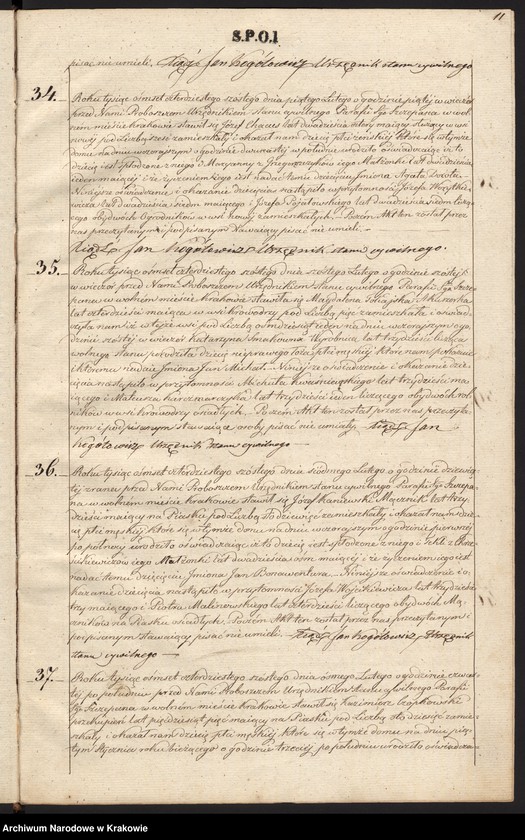 11
S.P.O.1
pisać nie umieli. Xiądz Jan Kogółowicz Urzędnik stanu cywilnego
34. Roku tysiąc ośmset czterdziestego szóstego dnia piątego Lutego o godzinie piątej wieczor
przed Nami Proboszczem Urzędnikiem stanu cywilnego Parafii Sgo Szczepana w wol-
nem mieście Krakowie stawił się Józef lat dwadzieścia cztery mający
wsi pod Liczbą sześć zamieszkały i okazał nam dziecię płci żeńskiej które się w tymże
domu na dniu wczorajszym o godzinie dwunastej w południe urodziło oświadczając iż to
dziecię jest spłodzone z niego i Maryanny z jego Małżonki lat dwadzieścia
jeden mającej i że życzeniem jego jest nadać temu dziecięciu Imiona Agata Dorota.
Niniejsze oświadczenie i okazanie dziecięcia nastąpiło w przytomności Józefa
lat dwadzieścia siedm mającego i Józefa lat dwadzieścia siedm liczą-
cego obydwóch Ogrodników w wsi zamieszkałych. Poczem Akt ten został przez
nas przeczytanym i podpisanym Stawający pisać nie umieli.
Xiądz Jan Kogółowicz Urzędnik stanu cywilnego.
35. Roku tysiąc ośmset czterdziestego szóstego dnia szóstego Lutego o godzinie szóstej
w wieczór przed Nami Proboszczem Urzędnikiem stanu cywilnego Parafii Sgo Szcze-
pana w wolnem mieście Krakowie stawiła się Magdalena Akuszerka
lat czterdzieści mająca w wsi Krowodrzy pod Liczbą pięć zamieszkała i oświad-
czyła nam iż w tejże wsi pod Liczbą ośmdziesiąt jeden na dniu wczorajszym o go-
dzinie szóstej w wieczór Katarzyna Wyrobnica lat trzydzieści licząca
wolnego stanu porodziła dziecię nieprawego łoża płci męskiej które nam pokazuje
i któremu nadaje Imiona Jan Michał. Niniejsze oświadczenie i okazanie dzie-
cięcia nastąpiło w przytomności Michała Kwaśniewskiego lat trzydzieści ma-
jącego i Mateusza lat trzydzieści jeden liczącego obydwóch rol-
ników w wsi Krowodrzy osiadłych. Poczem Akt ten został przez nas przeczyta-
nym i podpisanym stawające osoby pisać nie umiały. Xiądz Jan
Kogółowicz Urzędnik Stanu cywilnego
36. Roku tysiąc ośmset czterdziestego szóstego dnia siódmego Lutego o godzinie dziewią-
tej zrana przed Nami Proboszczem Urzędnikiem stanu cywilnego Parafii Sgo Szczepa-
na w wolnem mieście Krakowie stawił się Józef Kaniewski Mącznik lat trzy-
dzieści mający na Piasku pod Liczbą sto dziewięć zamieszkały i okazał nam dzie-
cię płci męskiej które się w tymże domu na dniu wczorajszym o godzinie pierwszej
po północy urodziło oświadczając iż to dziecię jest spłodzone z niego i Tekli z
jego Małżonki lat dwadzieścia ośm mającej i że życzeniem jego jest
nadać temu dziecięciu Imiona Jan Bonawentura. Niniejsze oświadczenie i o-
kazanie dziecięcia nastąpiło w przytomności Józefa Wojcikiewicza lat trzydzieści
trzy mającego i Piotra Malinowskiego lat czterdzieści liczącego obydwóch Mą-
czników na Piasku osiadłych. Poczem Akt ten został przez nas przeczytanym i
podpisanym stawający pisać nie umieli. Xiądz Jan Kogółowicz Urzędnik
stanu cywilnego
37. Roku tysiąc ośmset czterdziestego szóstego dnia ósmego Lutego o godzinie czwar-
tej po południu przed Nami Proboszczem Urzędnikiem Stanu cywilnego Parafii
Sgo Szczepana w wolnem mieście Krakowie stawił się Kazimierz Czapkowski
przekupień lat pięćdziesiąt pięć mający na Piasku pod Liczbą sto dziesięć zamie-
szkały i okazał nam dziecię płci męskiej które się w tymże domu na dniu pią-
tym Stycznia roku bieżącego o godzinie trzeciej po południu urodziło oświadcza-
Archiwum Narodowe w Krakowie